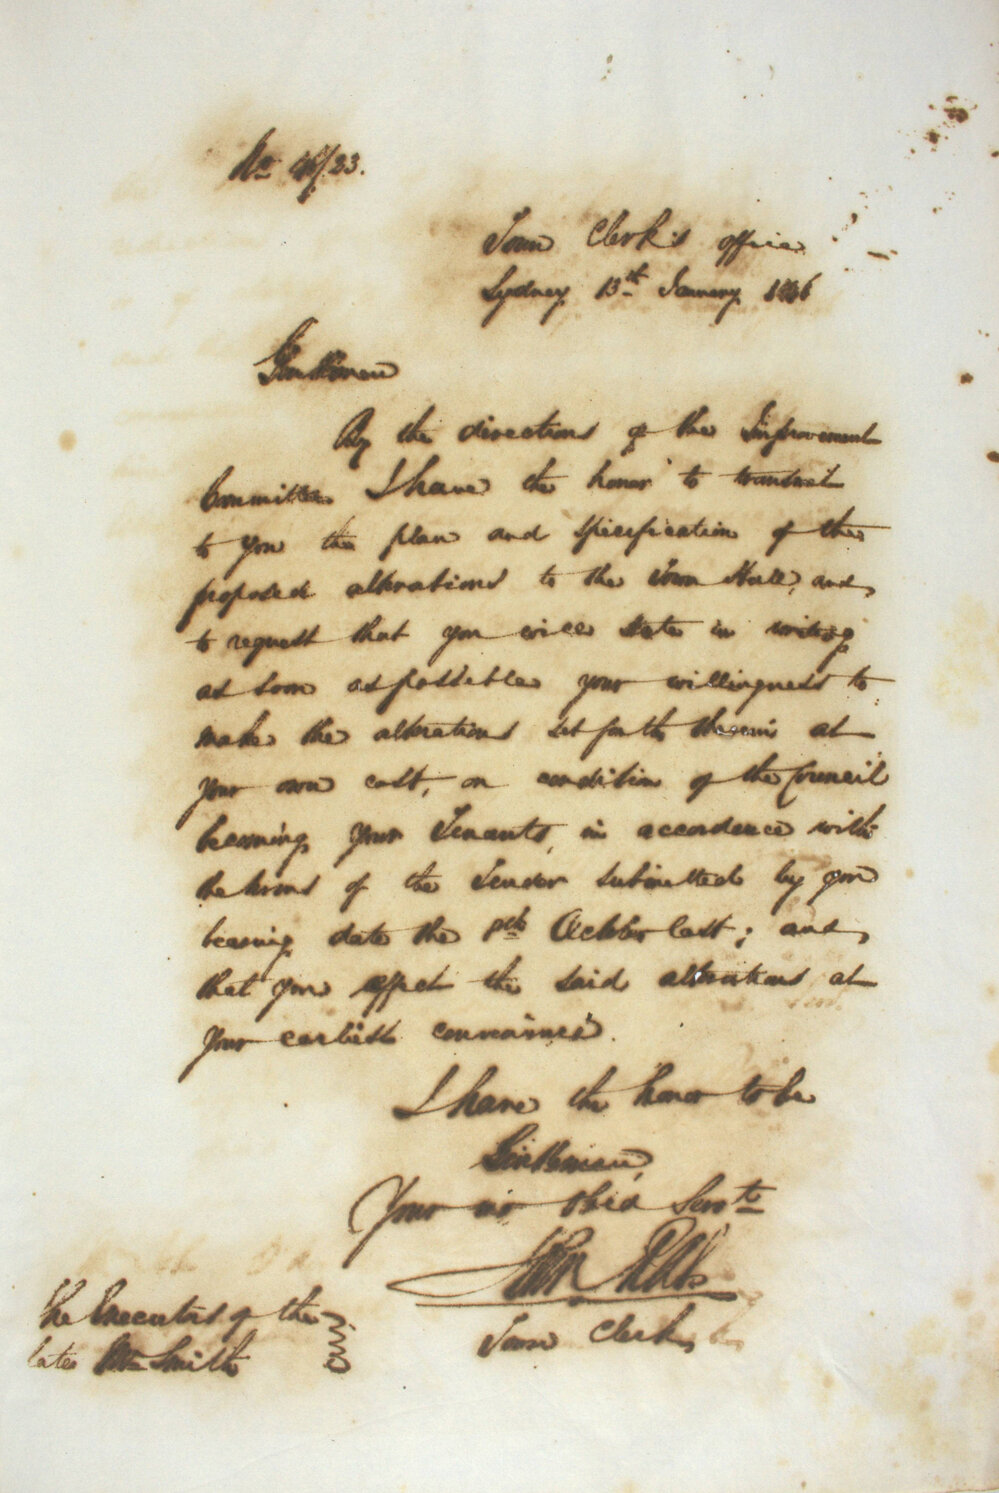 No 46/23.
Town Clerk's office
Sydney 13th January 1846
Gentlemen
By the directions of the Improvement
Committee I have the honor to transmit
to you the plan and specification of the
proposed alterations to the Town Hall, and
to request that you will state in writing
as soon as possible your willingness to
make the alterations set forth therein at
your own cost, on condition of the Council
becoming your Tenants, in accordance with
the terms of the Tender submitted by you
bearing date the October last; and
that you effect the said alterations at
your earliest convenience.
I have the honor to be
Gentlemen,
Your mo Obed Servt
Town Clerk
The Executors of the
late Wm Smith